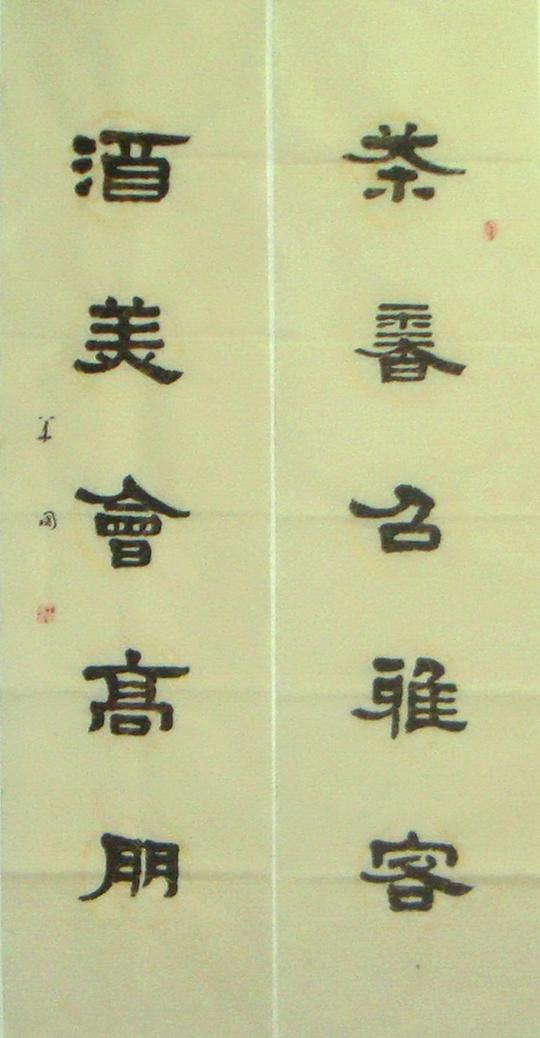 茶香召雅客
酒美會高朋